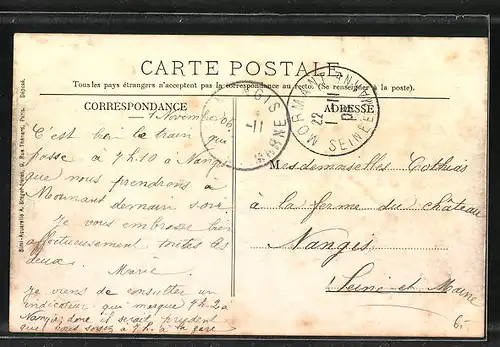 CARTE POSTALE
Tous les pays étrangers n'acceptent pas la correspondance au recto. (Se renseigner à la poste).
CORRESPONDANCE
1 Novembre 06
C'est bien le train qui
passe à 7h.10 à Nangis
que nous prendrons à
Mormant demain soir
Je vous embrasse bien
affectueusement toutes les
deux.
Marie
Je viens de consulter un
indicateur qui marque 7h.2 à
Nangis donc il serait prudent
que vous soyez à 7h. à la gare
ADRESSE
Mesdemoiselles Cothias
à la ferme du château
Nangis
Seine et Marne
MORMANT
SEINE
22
11
MARNE
11
6.-
Simi-Aquarelle A. Breger frères, 9, Rue Thénard, Paris. Déposé.